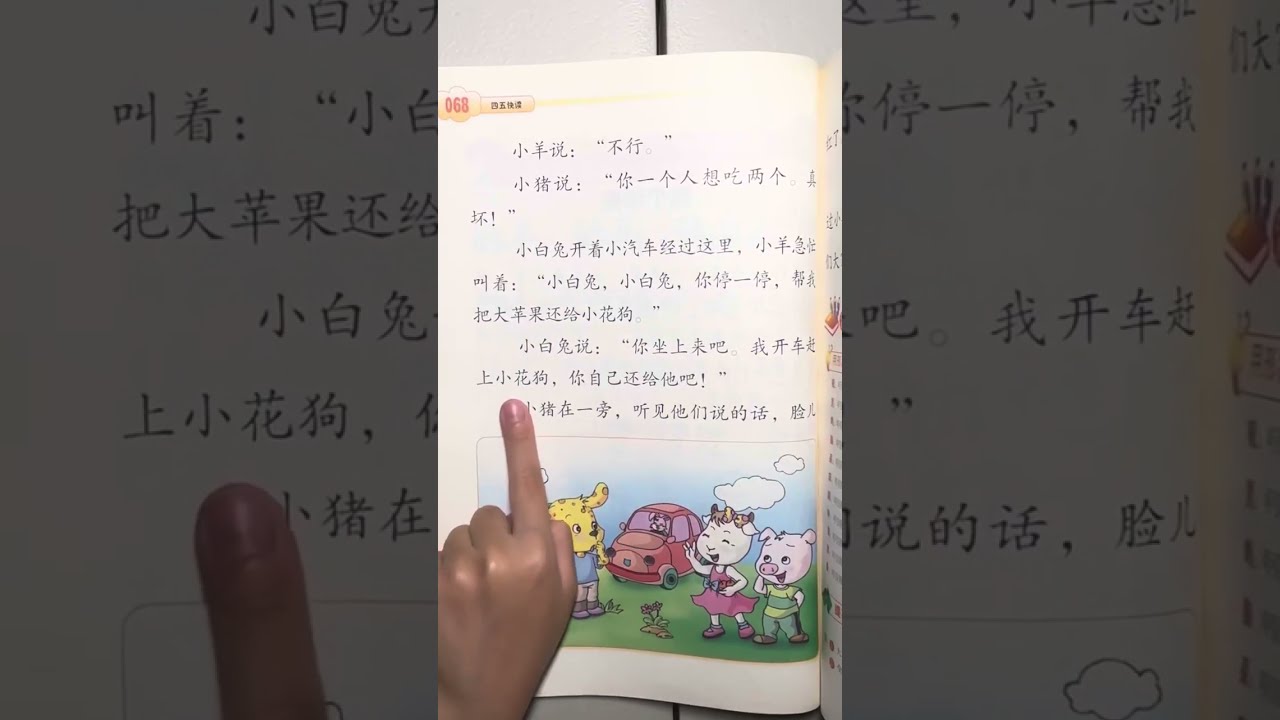 068 四五快读
小羊说：“不行。”
小猪说：“你一个人想吃两个。真
坏！”
小白兔开着小汽车经过这里，小羊急忙
叫着：“小白兔，小白兔，你停一停，帮我
把大苹果还给小花狗。”
小白兔说：“你坐上来吧。我开车赶
上小花狗，你自己还给他吧！”
小猪在一旁，听见他们说的话，脸儿